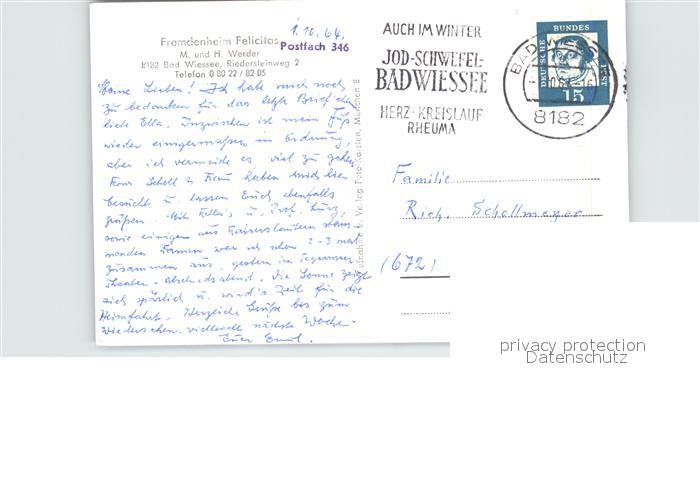 1.10.64.
Fremdenheim Felicitas
Postfach 346
M. und H. Werder
8182 Bad Wiessee, Riedersteinweg 2
Telefon 0 80 22 / 82 05
Meine Lieben! Ich habe mich noch
zu bedanken für das letzte Briefchen
liebe Ella. Inzwischen ist mein Fuß
wieder einigermaßen in Ordnung,
aber ich vermeide es, viel zu gehen.
Frau Scholl u. Frau haben mich hier
besucht u. lassen Euch ebenfalls
grüßen. Mit Keller's u. Prof. Kurz,
sowie einigen aus Kaiserslautern stam-
menden Damen war ich schon 2-3 mal
zusammen aus, gestern im Tegernseer
Theater-Abschiedsabend. Die Sonne zeigt
sich spärlich u. wird's Zeit für die
Heimfahrt. Herzliche Grüße bis zum
Wiedersehen vielleicht nächste Woche.
Euer Emil.
Aufnahme u. Verlag Foto-Karsten, München 8
AUCH IM WINTER
JOD-SCHWEFEL-
BAD WIESSEE
HERZ-KREISLAUF
RHEUMA
BAD WIESSEE
8182
DEUTSCHE BUNDESPOST
15
Familie
Rich. Schollmeyer
(672)
privacy protection
Datenschutz